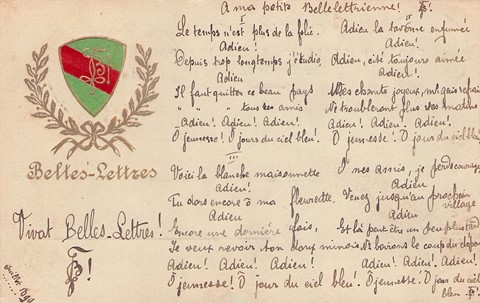 A ma petite Bellelettrienne!
II
Le temps n'est plus de la folie.
Adieu!
Depuis trop longtemps j'étudie,
Adieu
Il faut quitter ce beau pays
" " " tous les amis
Adieu! Adieu! Adieu! Adieu!
O jeunesse! O jours du ciel bleu!
II
Adieu la taverne enfumée
Adieu!
Adieu, cité toujours aimée
Adieu!
Mes chants joyeux, mes gais refrains
Ne troubleront plus
Adieu! Adieu! Adieu! Adieu!
O jeunesse! O jours du ciel bleu!
III
Voici la blanche maisonnette
Adieu!
Tu dors encore ô ma fleurette,
Adieu
Encore une dernière fois,
Je veux revoir ton doux minois,
Adieu! Adieu! Adieu! Adieu!
O jeunesse! O jour du ciel bleu!
O mes amis, je perds courage,
Adieu!
Venez jusqu'au prochain village
Adieu
Et là peut être un peu plus tard
Nous boirons le coup du départ
Adieu! Adieu! Adieu! Adieu!
O jeunesse! O jour du ciel bleu.
Belles-Lettres
Vivat Belles-Lettres!
Juillet